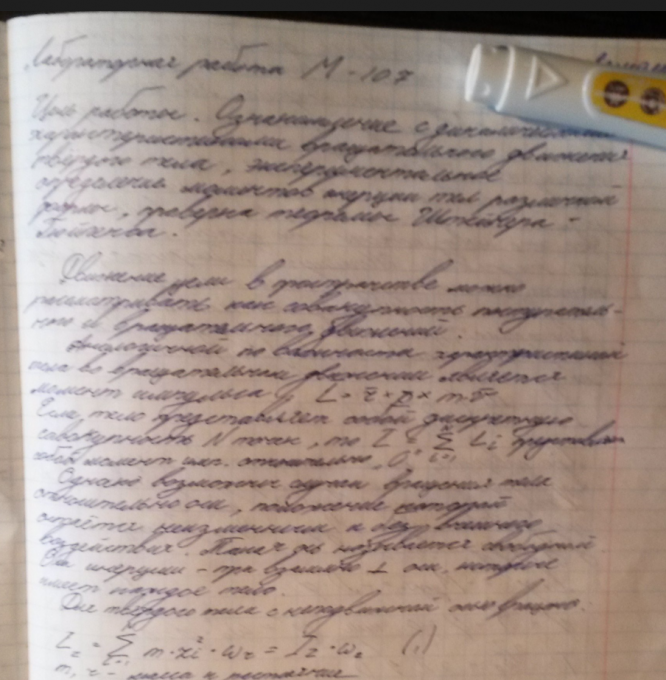 Лабораторная работа М-107
Цель работы. Ознакомление с динамическими
характеристиками вращательного движения
твёрдого тела, экспериментальное
определение моментов инерции тел различной
формы, проверка теоремы Штейнера -
Гюйгенса.
Движение тела в пространстве можно
рассматривать как совокупность поступатель-
ного и вращательного движений.
Аналогичной по важности характеристикой
тела во вращательном движении является
момент импульса
Если тело представляет собой дискретную
совокупность N точек, то
собой момент имп. относительно "О"
Однако возможны случаи вращения тела
относительно оси, положение которой
остаётся неизменным и без внешнего
воздействия. Такая ось называется свободной
Оси инерции - три взаимно ⊥ оси, которые
имеет каждое тело.
Для твёрдого тела с неподвижной осью вращения.
(1)